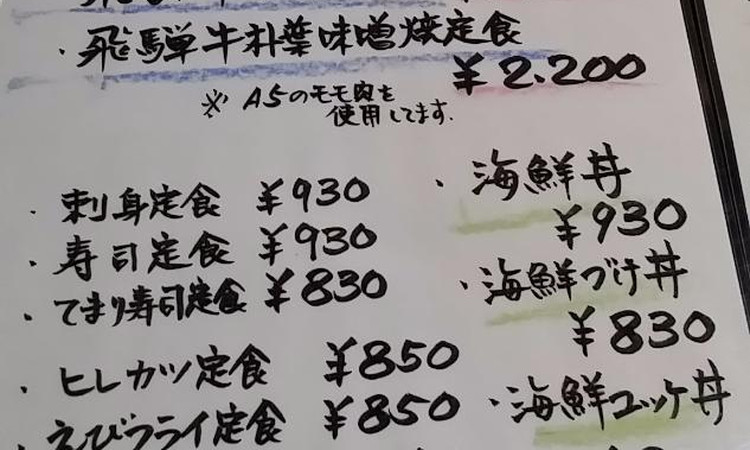 ・飛騨牛朴葉味噌焼定食
¥2.200
※ A5のモモ肉を
使用してます.
・刺身定食 ¥930
・寿司定食 ¥930
・てまり寿司定食 ¥830
・ヒレカツ定食 ¥850
・えびフライ定食 ¥850
・海鮮丼
¥930
・海鮮づけ丼
¥830
・海鮮ユッケ丼